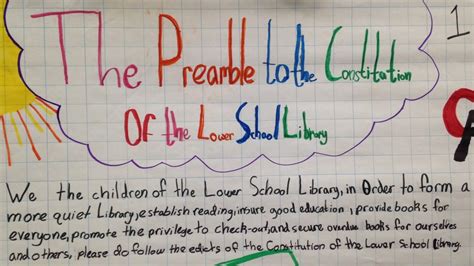 The Preamble to the Constitution
Of the Lower School Library
1
We the children of the Lower School Library, in Order to form a
more quiet Library, establish reading, insure good education, provide books for
everyone, promote the privilege to check-out, and secure overdue books for ourselves
and others, please do follow the edicts of the Constitution of the Lower School Library.